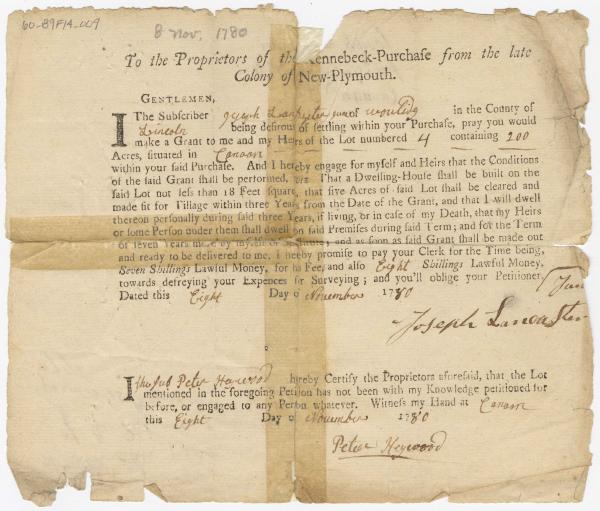 60-89F14-009
8 Nov. 1780
To the Proprietors of the Kennebeck-Purchase from the late
Colony of New-Plymouth.
GENTLEMEN,
I The Subscriber Joseph Lankester of in the County of
Lincoln being desirous of settling within your Purchase, pray you would
make a Grant to me and my Heirs of the Lot numbered 4 containing 200
Acres, situated in Canaan
within your said Purchase. And I hereby engage for myself and Heirs that the Conditions
of the said Grant shall be performed, viz That a Dwelling-House shall be built on the
said Lot not less than 18 Feet square, that five Acres of said Lot shall be cleared and
made fit for Tillage within three Years from the Date of the Grant, and that I will dwell
thereon personally during said three Years, if living, or in case of my Death, that my Heirs
or some Person under them shall dwell on said Premises during said Term; and for the Term
of seven Years more by myself or Substitute; and as soon as said Grant shall be made out
and ready to be delivered to me, I hereby promise to pay your Clerk for the Time being,
Seven Shillings Lawful Money, for his Fee, and also Eight Shillings Lawful Money,
towards defreying your Expences for Surveying; and you'll oblige your Petitioner,
Dated this Eight Day of November 1780
Joseph Lancaster
I the sub Peter Heywood hereby Certify the Proprietors aforesaid, that the Lot
mentioned in the foregoing Petition has not been with my Knowledge petitioned for
before, or engaged to any Person whatever. Witness my Hand at Canaan
this Eight Day of November 1780
Peter Heywood